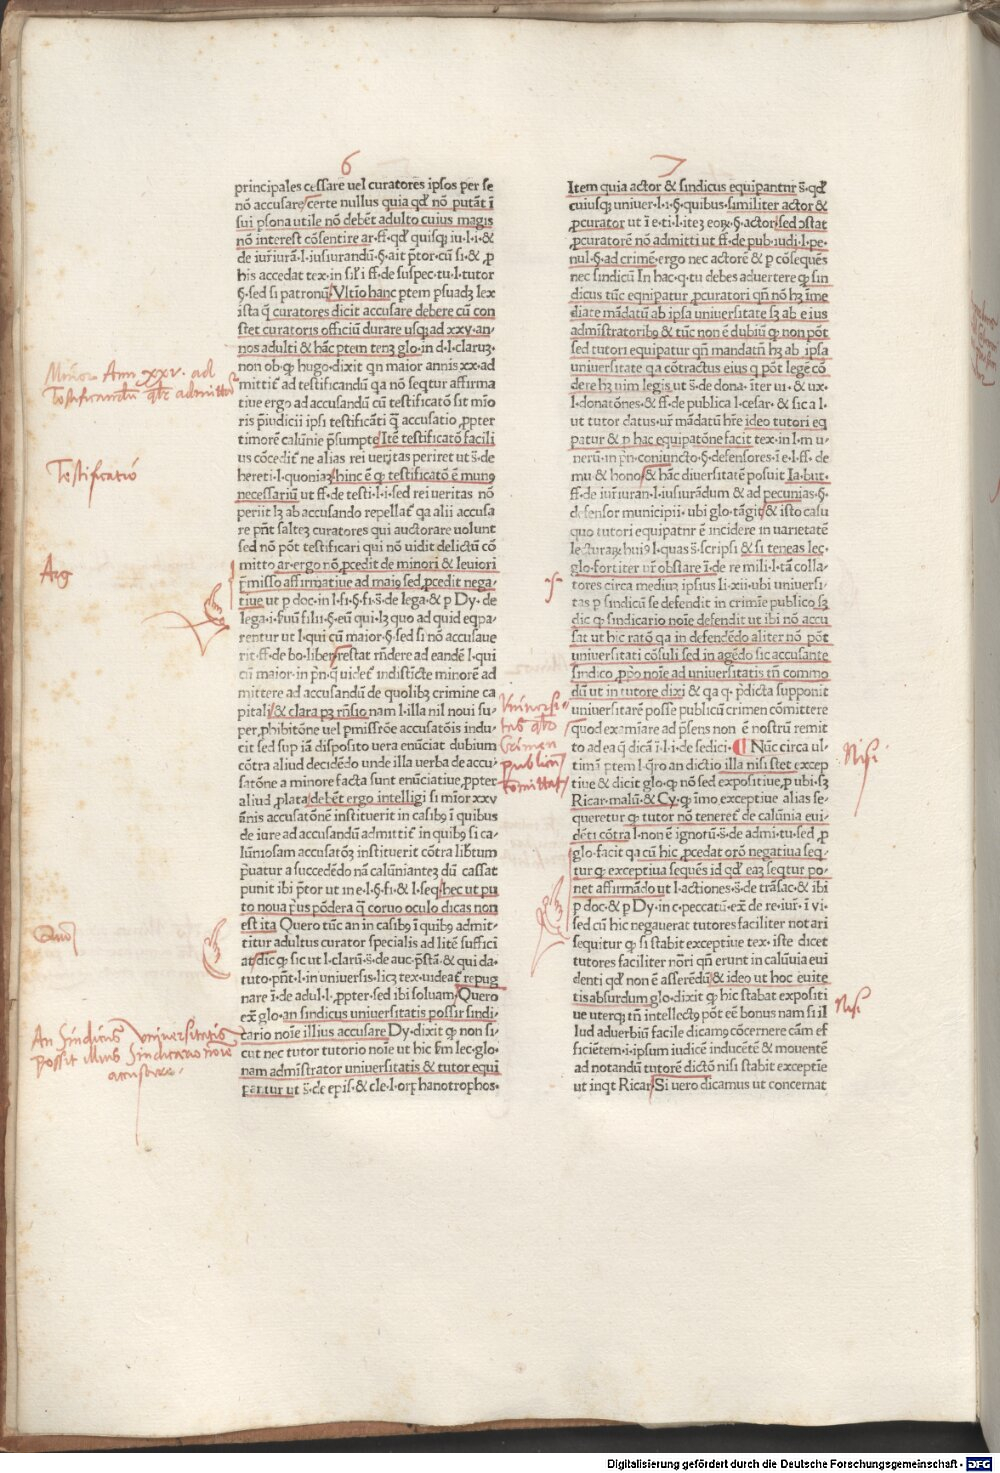 6
principales cessare uel curatores ipsos per se
nõ accusare certe nullus quia qď nõ putãt ĩ
sui p̱sona utile nõ debẽt adulto cuius magis
nõ interest cõsentire ar·ff·qď quisq; iu·l·i·&
de iur̃iurã·l·iusiurandũ·§·ait p̃tor·cũ si·& ꝓ
his accedat tex·in sil̃i ff·de suspec·tu·l·tutor
§·sed si patronũ Vltĩo hanc ptem psuadȝ lex
ista q̃ curatores dicit accusare debere cũ con
stet curatoris officiũ durare usq; ad xxv·an-
nos adulti & hãc ptem tenȝ glo·in d·l·claruȝ·
non ob·ꝙ hugo·dixit qn maior annis xx·ad
mittit̃ ad testificandũ qa nõ seqtur affirma
tiue ergo ad accusandũ cũ testificatõ sit mĩo
ris p̃iudicii ipsi testificãti q̃ accusatio ꝓpter
timorẽ calũnie p̃sumpte Itẽ testificatõ facili
us cõcedit̃ ne alias rei ueritas periret ut s̃·de
hereti·l·quoniaȝ hinc ẽ ꝙ testificatõ ẽ munꝰ
necessariũ ut ff·de testi·l·i·sed rei ueritas nõ
periit lȝ ab accusando repellat̃ qa alii accusa
re p̃nt saltẽȝ curatores qui auctorare uolunt
sed nõ põt testificari qui nõ uidit delictũ cõ
mitto ar·ergo nõ ꝓcedit de minori & leuiori
p̃misso affirmatiue ad maiꝰ sed ꝓcedit nega-
tiue ut p doc·in l·fi·§·fi·s̃·de lega·& p Dy·de
lega·i·f̃uũ filii·§·eũ qui·lȝ quo ad quid eqpa-
rentur ut l·qui cũ maior·§·sed si nõ accusaue
rit·ff·de bo·liber restat r̃ndere ad eandẽ l·qui
cũ maior·in p̃n·q̃ uidet̃ indisticte minorẽ ad
mittere ad accusandũ de quolibȝ crimine ca
pitali & clara pȝ rñsio nam l·illa nil noui su-
per ꝓhibitõne uel pmissiõe accusatõis indu-
cit sed sup iã disposito uera enũciat dubium
cõtra aliud decidẽdo unde illa uerba de accu-
satõne a minore facta sunt enũciatiue ꝓpter
aliud ꝓlata debẽt ergo intelligi si mĩor xxv
ãnis accusatõnẽ instituerit in casibꝰ ĩ quibus
de iure ad accusandũ admittit̃ in quibꝰ si ca-
lũniosam accusatõȝ instituerit cõtra lib̃tum
p̃uatur a succedẽdo nã calũniantez dũ cassat
punit ibi p̃tor ut in e·l·§·fi·& l·seq· hec ut pu
to noua p̃us põdera q̃ coruo oculo dicas non
est ita Quero tũc an in casibꝰ ĩ quibꝰ admit-
titur adultus curator specialis ad litẽ suffici
at dic ꝙ sic ut l·clarũ·s̃·de auc·p̃stã·& qui da-
tuto·p̃nt·l·in uniuersis·licȝ tex·uideat̃ repug
nare ĩ·de adul·l·ꝓpter·sed ibi soluam Quero
ex̃ glo·an sindicus uniuersitatis possit sindi-
cario noĩe illius accusare Dy·dixit ꝙ non si-
cut nec tutor tutorio noĩe ut hic s̃m lec·glo·
nam adm̃istrator uniuersitatis & tutor equi
pantur ut s̃·de epis·& cle·l·orphanotrophos·
Minor Ann xxv· ad
Testificandum
Testificatiõ
Arg
An Sindicus Vniuersitatis
possit illius Sindicario noĩe
accusare·
7
Item quia actor & sindicus equipantur s̃·qď
cuiusq; uniuer·l·i·§·quibus·similiter actor &
ꝓcurator ut ĩ e·ti·l·iteȝ eoꝝ·§·actor sed ɔstat
ꝓcuratorẽ nõ admitti ut ff·de pub·iudi·l·pe-
nul·§·ad crimẽ·ergo nec actorẽ & p cõsequẽs
nec sindicũ In hac·q·tu debes aduertere ꝙ sin
dicus tũc equipatur ꝓcuratori qñ nõ hȝ ĩme
diate mãdatũ ab ipsa uniuersitate sȝ ab eius
adm̃istratoribꝰ & tũc non ẽ dubiũ ꝙ non põt
sed tutori equipatur qñ mandatũ hȝ ab ipsa
uniuersitate qa cõtractus eius q põt legẽ cõ
dere hȝ uim legis ut s̃·de dona·ĩter ui·& ux·
l·donatõnes·& ff·de publica l·cesar·& sic a l·
ut tutor datus·ur̃ mãdatũ hr̃e ideo tutori eq
patur & p hac equipatõne facit tex·in l·m u-
nerũ·in p̃n·coniuncto·§·defensores·ĩ e·l·ff·de
mu & hono & hãc diuersitatẽ posuit Ia·but·
ff·de iur̃iuran·l·iusiurãdum & ad pecunias·§·
defensor municipii·ubi glo·tãgit & isto casu
quo tutori equipatur ẽ incidere in uarietatẽ
lecturaꝝ huiꝰ l·quas s̃·scripsi & si teneas lec·
glo·fortiter ur̃ obstare ĩ·de re mili·l·tã colla-
tores circa mediuȝ ipsius l·xii·ubi uniuersi-
tas p sindicũ se defendit in crimĩe publico sȝ
dic ꝙ sindicario noĩe defendit ut ibi nõ accu
sat ut hic ratõ qa in defendẽdo aliter nõ põt
uniuersitati cõsuli sed in agẽdo sic accusante
sindico ꝓprio noĩe ad uniuersitatis tñ commo
dũ ut in tutore dixi & qa q·p̃dicta supponit
uniuersitatẽ posse publicũ crimen cõmittere
quod examĩare ad p̃sens non ẽ nostrũ remit
to ad ea q̃ dicã ĩ·l·i·de sedici· ¶ Nũc circa ul-
timã ptem l·q̃ro an dictio illa nisi stet excep
tiue & dicit glo·ꝙ nõ sed expositiue ꝓ ubi·sȝ
Ricar·malũ·& Cy·ꝙ ĩmo exceptiue alias se-
queretur ꝙ tutor nõ teneret̃ de calũnia eui-
dẽti cõtra l·non ẽ ignotũ·s̃·de admi·tu·sed ꝓ
glo·facit qa cũ hic ꝓcedat orõ negatiua seq-
tur ꝙ exceptiua sequẽs id qď eaȝ seqtur po-
net affirmãdo ut l·actiones·s̃·de trãsac·& ibi
p doc·& p Dy·in c·peccatũ·ex̃ de re·iur̃·ĩ vi·
sed cũ hic negauerat tutores faciliter notari
sequitur ꝙ si stabit exceptiue tex·iste dicet
tutores faciliter nõri qñ erunt in calũuia eui
denti qď non ẽ asserẽdũ & ideo ut hoc euite
tis absurdum glo·dixit ꝙ hic stabat expositi
ue uterq; tñ intellectꝰ põt eẽ bonus nam si il
lud aduerbiũ facile dicamꝰ cõcernere cãm ef
ficiẽtem·i·ipsum iudicẽ inducẽtẽ & mouentẽ
ad notandũ tutorẽ dictõ nisi stabit exceptĩe
ut inqt Ricar Si uero dicamus ut concernat
Vniuersi-
tas
Crimen
publicum
comittat
Nisi
Nisi
Digitalisierung gefördert durch die Deutsche Forschungsgemeinschaft - DFG